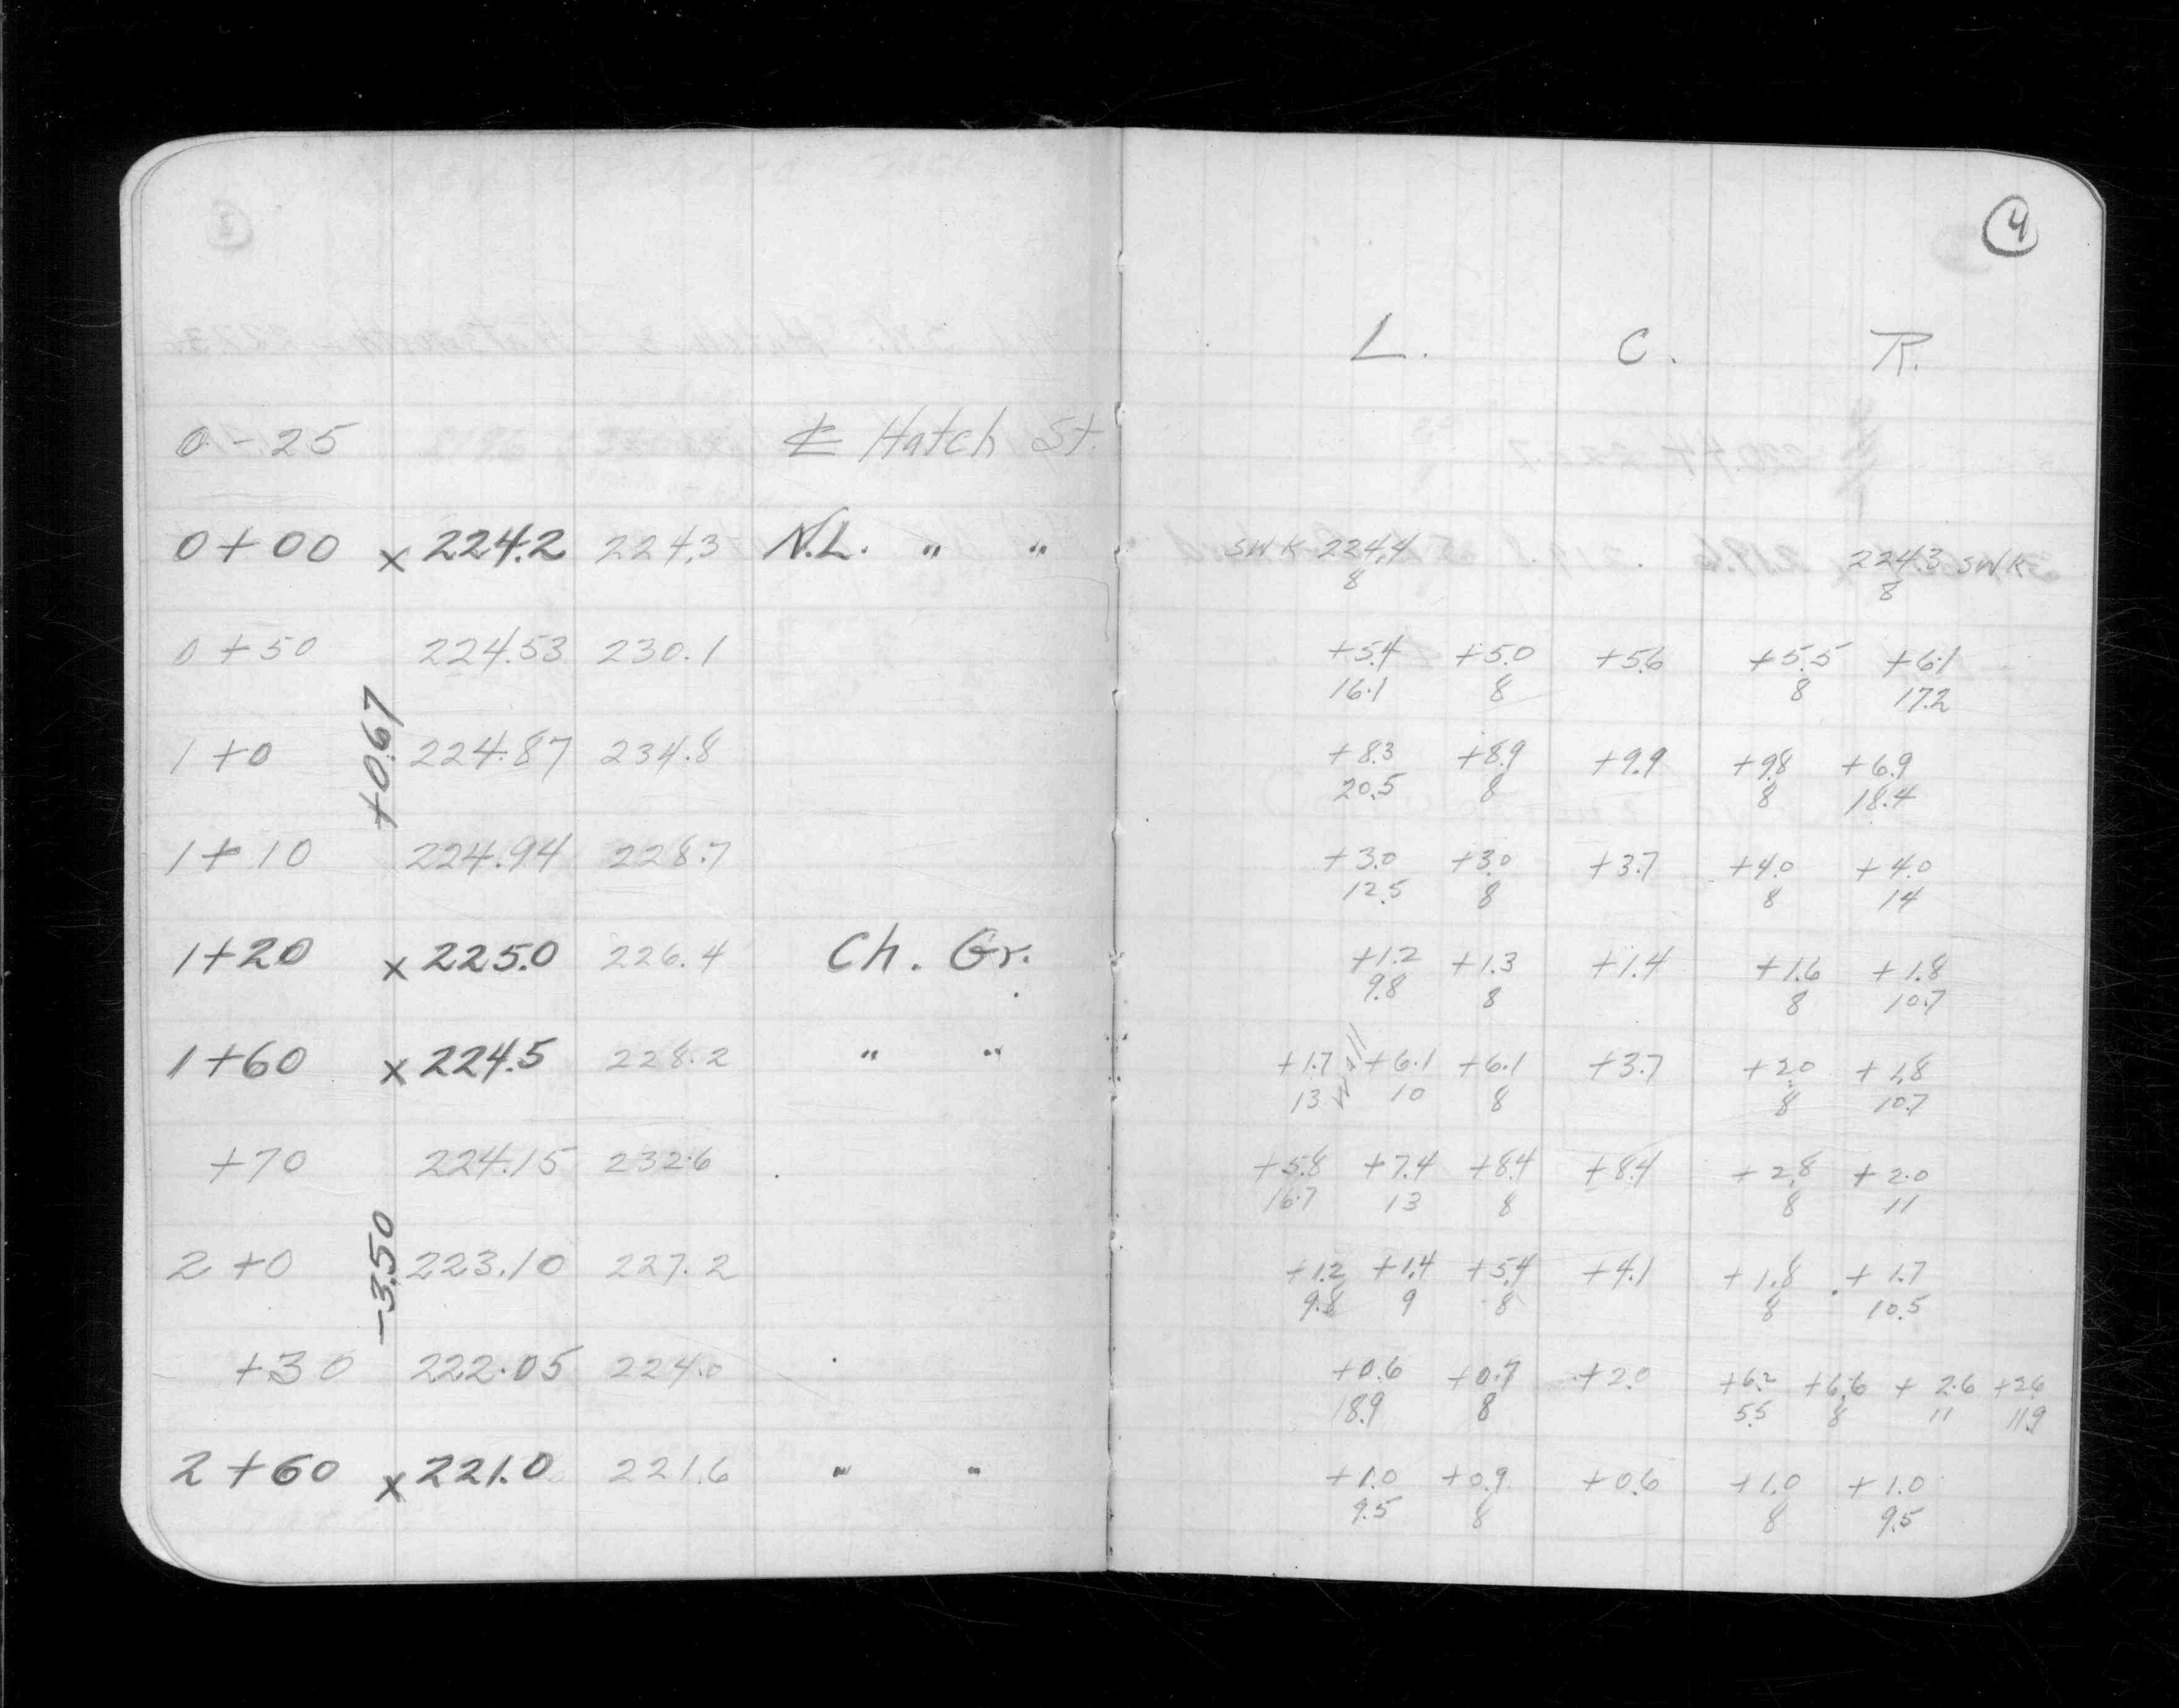 4
L. C. R.
0 - 25 ℄ Hatch St.
0+00 x 224.2 224.3 N.L. " " SWK 224.4 224.3 SWK
8 8
0+50 224.53 230.1 +5.4 +5.0 +5.6 +5.5 +6.1
16.1 8 8 17.2
+0.67
1+0 224.87 234.8 +8.3 +8.9 +9.9 +9.8 +6.9
20.5 8 8 18.4
1+10 224.94 228.7 +3.0 +3.0 +3.7 +4.0 +4.0
12.5 8 8 14
1+20 x 225.0 226.4 Ch. Gr. +1.2 +1.3 +1.4 +1.6 +1.8
9.8 8 8 10.7
1+60 x 224.5 228.2 " " +1.7 Wall +6.1 +6.1 +3.7 +2.0 +1.8
13 10 8 8 10.7
+70 224.15 232.6 +5.8 +7.4 +8.4 +8.4 +2.8 +2.0
16.7 13 8 8 11
-3.50
2+0 223.10 227.2 +1.2 +1.4 +5.4 +4.1 +1.8 +1.7
9.8 9 8 8 10.5
+30 222.05 224.0 +0.6 +2.0 +6.2 +6.6 +2.6 +2.6
18.9 8 5.5 8 11 11.9
2+60 x 221.0 221.6 " " +1.0 +0.9 +0.6 +1.0 +1.0
9.5 8 8 9.5